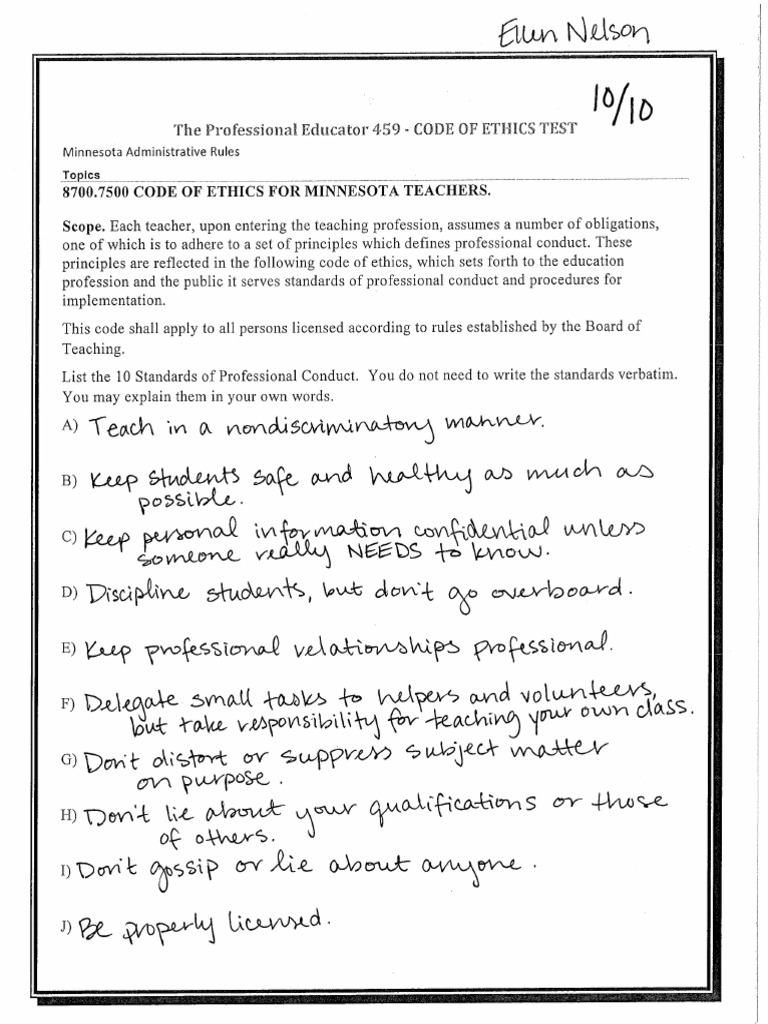 Ellen Nelson
10/10
The Professional Educator 459 - CODE OF ETHICS TEST
Minnesota Administrative Rules
Topics
8700.7500 CODE OF ETHICS FOR MINNESOTA TEACHERS.
Scope. Each teacher, upon entering the teaching profession, assumes a number of obligations,
one of which is to adhere to a set of principles which defines professional conduct. These
principles are reflected in the following code of ethics, which sets forth to the education
profession and the public it serves standards of professional conduct and procedures for
implementation.
This code shall apply to all persons licensed according to rules established by the Board of
Teaching.
List the 10 Standards of Professional Conduct. You do not need to write the standards verbatim.
You may explain them in your own words.
A) Teach in a nondiscriminatory manner.
B) Keep students safe and healthy as much as
possible.
C) Keep personal information confidential unless
someone really NEEDS to know.
D) Discipline students, but don't go overboard.
E) Keep professional relationships professional.
F) Delegate small tasks to helpers and volunteers,
but take responsibility for teaching your own class.
G) Don't distort or suppress subject matter
on purpose.
H) Don't lie about your qualifications or those
of others.
I) Don't gossip or lie about anyone.
J) Be properly licensed.